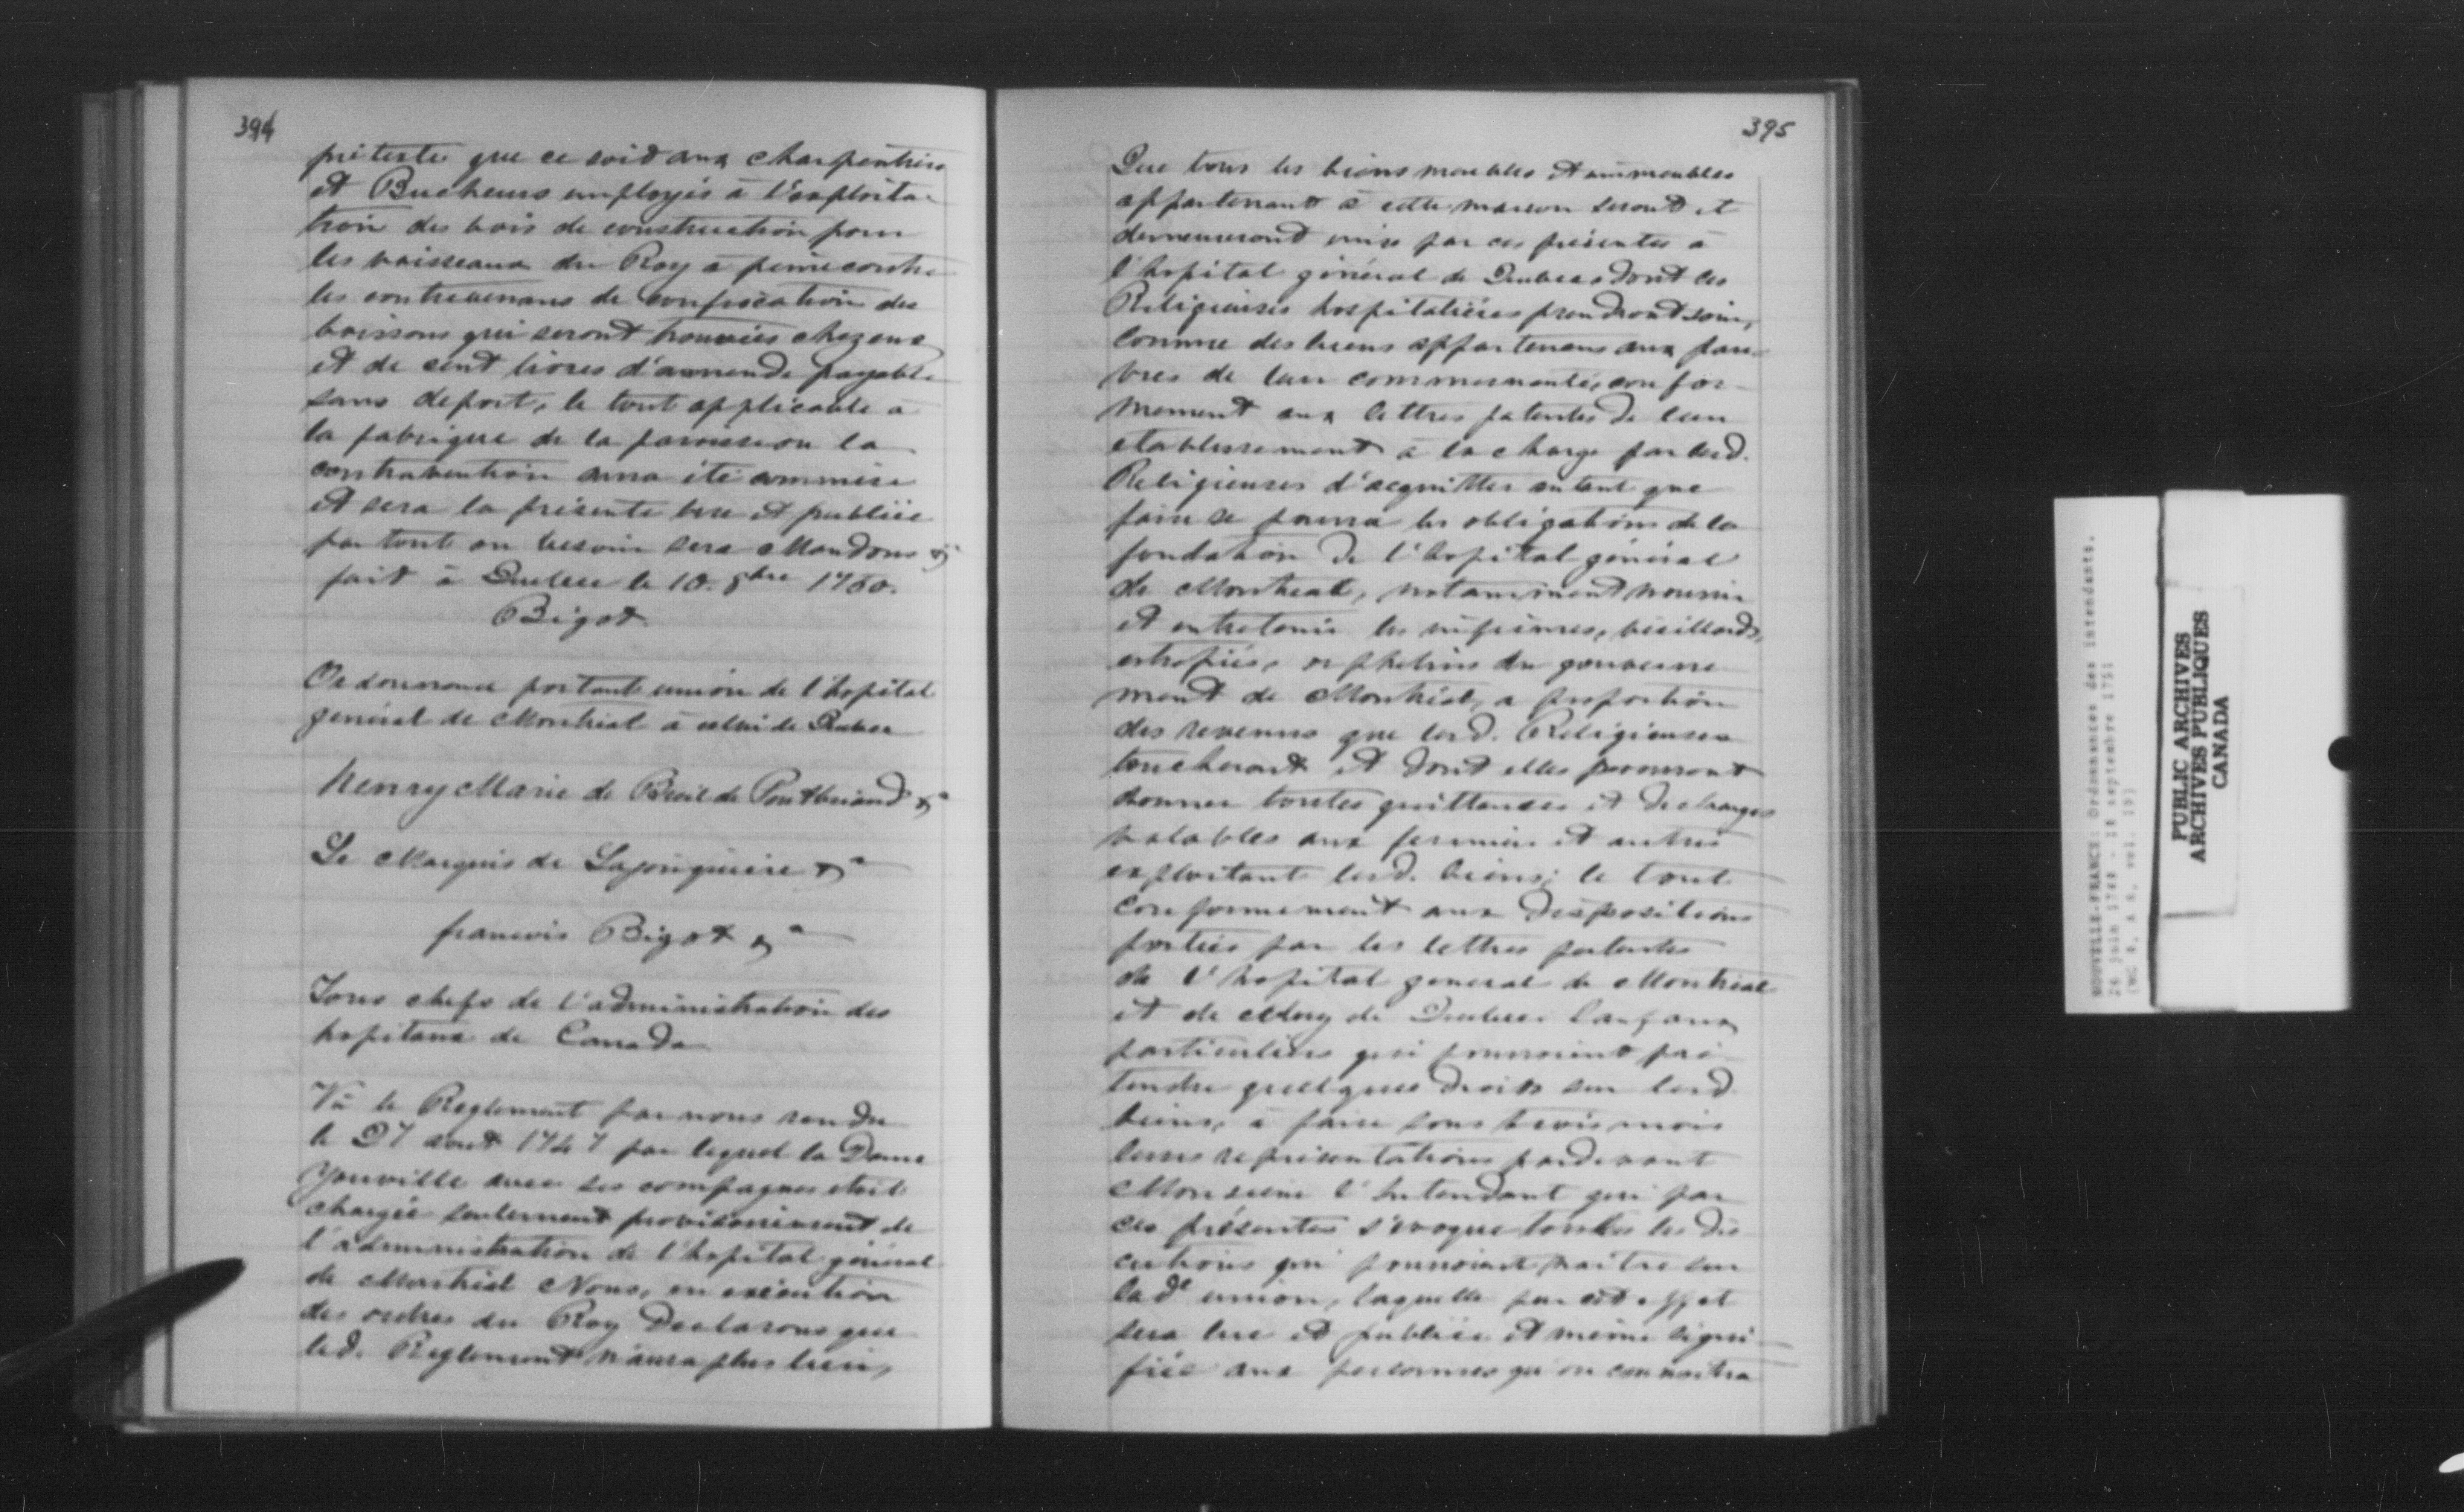 394
prétexte que ce soit aux charpentiers
et Bucheurs employés à l'exploita-
tion des bois de construction pour
les vaisseaux du Roy à peine contre
les contrevenans de confiscation des
boissons qui seront trouvées chez eux
et de cent livres d'amende payable
sans deport, le tout applicable à
la fabrique de la paroisse ou la
contravention aura été commise
et sera la présente lue et publiée
partout ou besoin sera Mandons &
fait à Quebec le 10. 8bre 1750.
Bigot
Ordonnance portant union de l'hopital
general de Montreal à celui de Quebec
Henry Marie de Breil de Pontbriand &a
Le Marquis de Lajonquiere &a
francois Bigot &a
Tous chefs de l'administration des
hopitaux de Canada
Vu le Reglement par nous rendu
le 27 aout 1747 par lequel la Dame
Youville avec ses compagnes etoit
chargée seulement provisoirement de
l'administration de l'hopital général
de Montréal Nous, en exécution
des ordres du Roy Declarons que
led. Reglement n'aura plus lieu,
395
Que tous les biens meubles et immeubles
appartenant à cette maison seront et
demeureront unis par ces présentes à
l'hopital général de Quebec dont les
Religieuses hospitalières prendront soin,
comme des biens appartenans aux pau-
vres de leur communauté, confor-
mement aux lettres patentes de leur
etablissement à la charge par lesd.
Religieuses d'acquitter autant que
faire se pourra les obligations de la
fondation de l'hopital général
de Montreal, notamment nourrir
et entretenir les infirmes, vieillards,
estropiés, orphelins du gouverne
ment de Montréal, a proportion
des revenus que lesd. Religieuses
toucheront et dont elles pourront
donner toutes quittances et decharges
valables aux fermiers et autres
exploitant lesd. biens; le tout
conformement aux dispositions
portées par les lettres patentes
de l'hopital general de Montreal
et de celuy de Quebec. Sauf aux
particuliers qui pourroient pré
tendre quelques droits sur lesd
biens, à faire sous trois mois
leurs représentations pardevant
Monsieur l'Intendant qui par
ces présentes s'evoque toutes les dis
cutions qui pourroient naitre sur
lade union, laquelle par cet effet
sera lue et publiée et meme signi-
fiée aux personnes qu'on connoitra
NOUVELLE-FRANCE: Ordonnances des intendants.
26 juin 1749 - 18 septembre 1751
PUBLIC ARCHIVES
ARCHIVES PUBLIQUES
CANADA